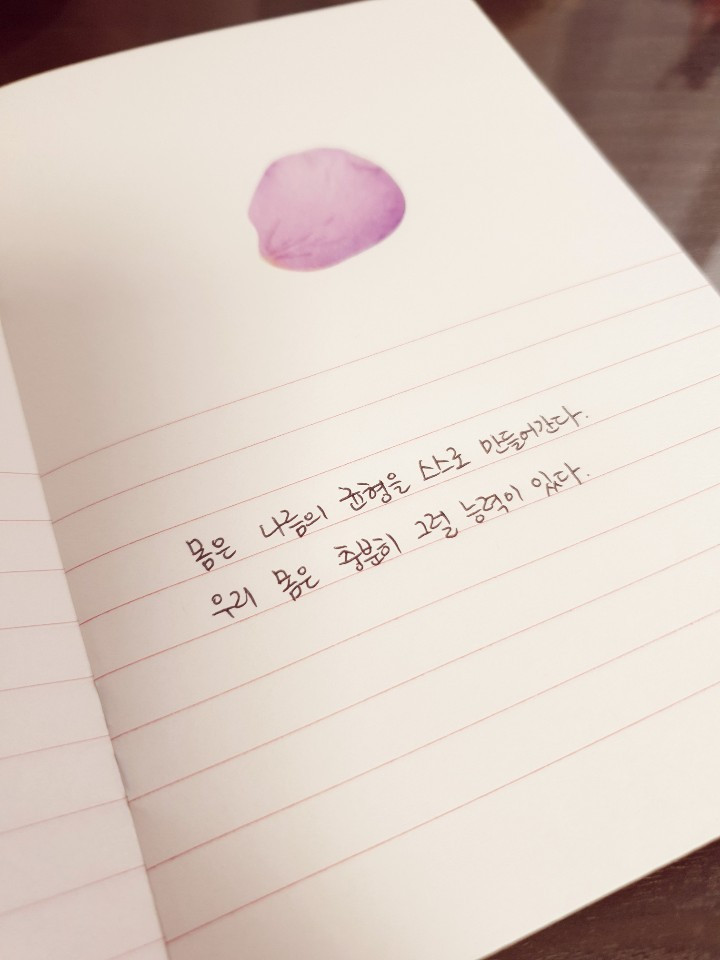 몸은 나름의 균형을 스스로 만들어간다.
우리 몸은 충분히 그럴 능력이 있다.